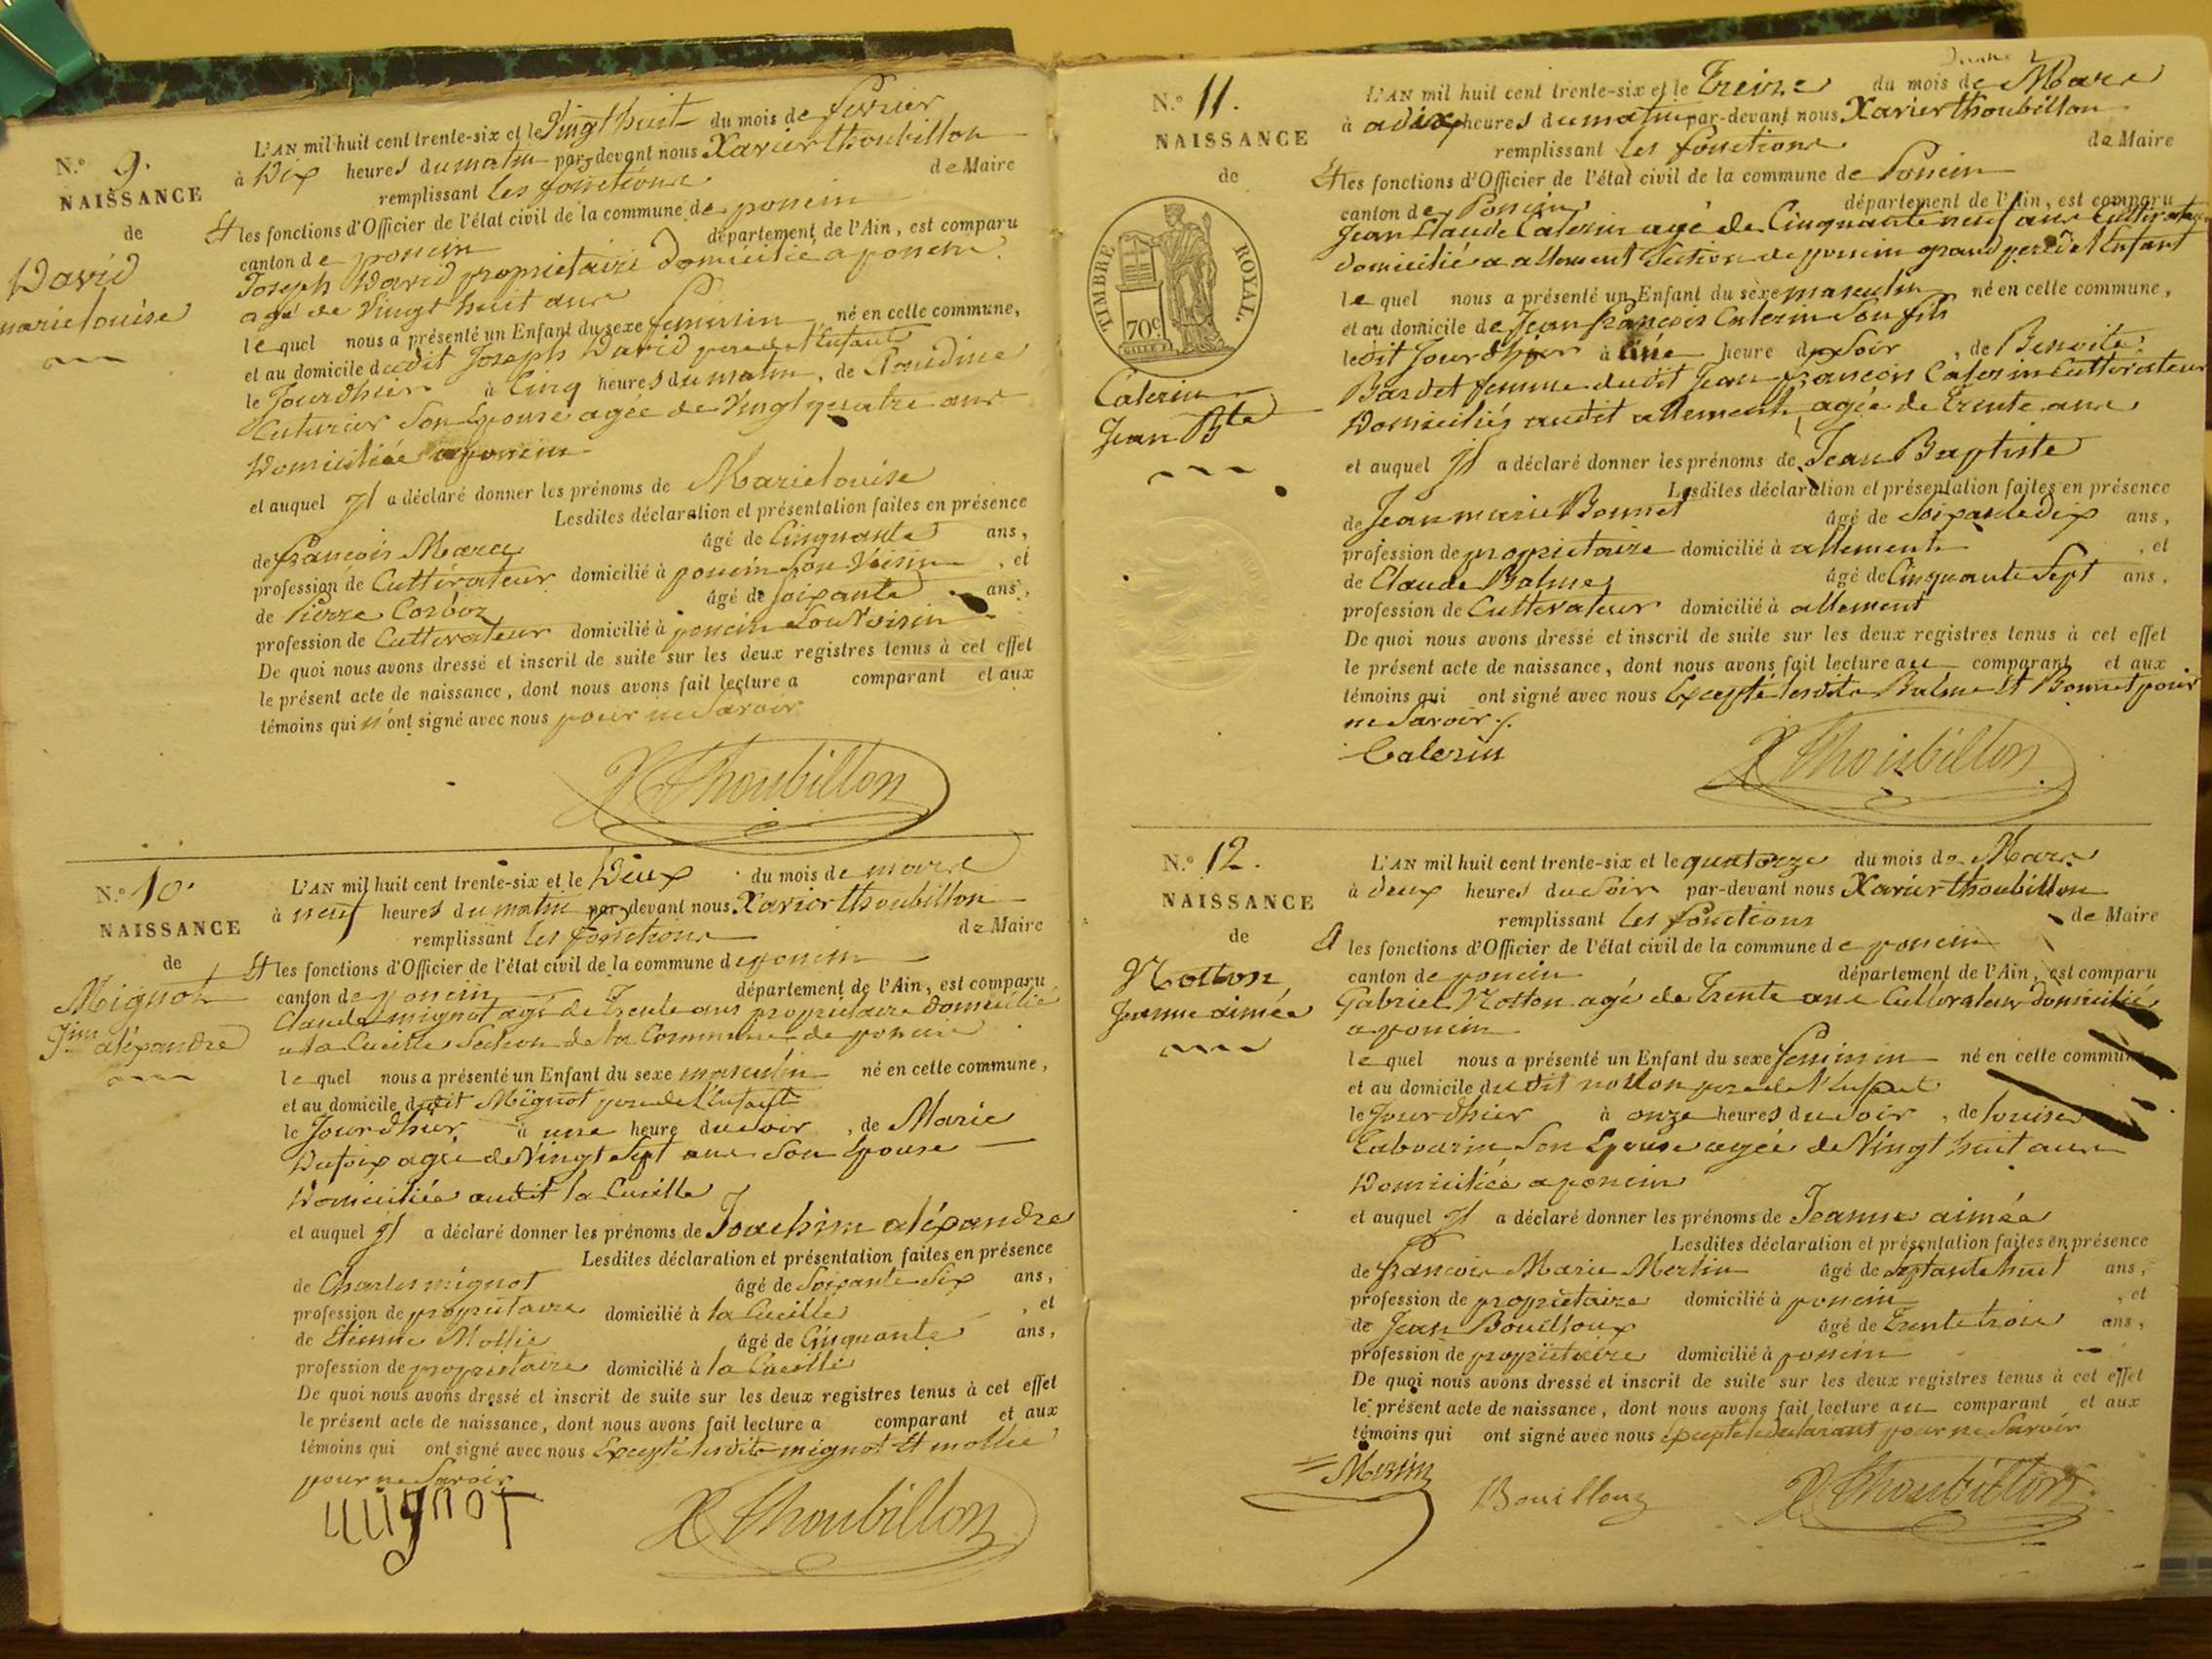 N.º 9.
NAISSANCE
de
David
marie louise
L'AN mil huit cent trente-six et le Vingt huit du mois de fevrier
à Dix heures du matin par-devant nous Xavier thoubillon
remplissant les fonctions de Maire
Et les fonctions d'Officier de l'état civil de la commune de poncin
canton de poncin département de l'Ain, est comparu
Joseph David propriétaire Domicilié a poncin
agé de Vingt huit ans
lequel nous a présenté un Enfant du sexe feminin né en cette commune,
et au domicile dudit Joseph David pere de l'Enfant
le Jour d'hier à Cinq heures du matin, de
Cuturier Son Epouse agée de Vingt quatre ans
Domiciliée a poncin
et auquel Il a déclaré donner les prénoms de Marie louise
Lesdites déclaration et présentation faites en présence
de françois Marc âgé de Cinquante ans,
profession de Cultivateur domicilié à poncin Son Voisin, et
de Pierre Corboz âgé de soixante ans,
profession de Cultivateur domicilié à poncin Son Voisin
De quoi nous avons dressé et inscrit de suite sur les deux registres tenus à cet effet
le présent acte de naissance, dont nous avons fait lecture a comparant et aux
témoins qui n'ont signé avec nous pour ne Savoir
X Thoubillon
N.º 10.
NAISSANCE
de
Mignot
Jim aléxandre
L'AN mil huit cent trente-six et le Deux du mois de mars
à neuf heures du matin par-devant nous Xavier thoubillon
remplissant les fonctions de Maire
Et les fonctions d'Officier de l'état civil de la commune de poncin
canton de poncin département de l'Ain, est comparu
Claude mignot agé de Trente ans propriétaire Domicilié
a la Cueille Section de la Commune de poncin
lequel nous a présenté un Enfant du sexe masculin né en cette commune,
et au domicile dudit Mignot pere de l'Enfant
le Jour d'hier à une heure du soir, de Marie
Dufoix agée de Vingt Sept ans Son Epouse
Domiciliée audit la Cueille
et auquel Il a déclaré donner les prénoms de Joachim aléxandre
Lesdites déclaration et présentation faites en présence
de Charles mignot âgé de Soixante Six ans,
profession de propriétaire domicilié à la Cueille, et
de Etienne Mollie âgé de Cinquante ans,
profession de propriétaire domicilié à la Cueille
De quoi nous avons dressé et inscrit de suite sur les deux registres tenus à cet effet
le présent acte de naissance, dont nous avons fait lecture a comparant et aux
témoins qui ont signé avec nous Excepté lesdits mignot Et mollie
pour ne Savoir
mignot
X Thoubillon
N.º 11.
NAISSANCE
de
TIMBRE ROYAL.
70c
Calerin
Jean Bte
L'AN mil huit cent trente-six et le Treize du mois de Mars
à a dix heures du matin par-devant nous Xavier thoubillon
remplissant les fonctions de Maire
Et les fonctions d'Officier de l'état civil de la commune de Poncin
canton de Poncin département de l'Ain, est comparu
Jean Claude Calerin agé de Cinquante neuf ans Cultivateur
Domicilié a allement Section de poncin grand pere de l'Enfant
lequel nous a présenté un Enfant du sexe masculin né en cette commune,
et au domicile de Jean françois Calerin Son fils
ledit Jour d'hier à une heure du Soir, de Benoite
Bardet femme dudit Jean françois Calerin Cultivateur
Domiciliés audit allement, agée de trente ans
et auquel Il a déclaré donner les prénoms de Jean Baptiste
Lesdites déclaration et présentation faites en présence
de Jean marie Bonnet âgé de Soixante dix ans,
profession de propriétaire domicilié à allement, et
de Claude Balme âgé de Cinquante Sept ans,
profession de Cultivateur domicilié à allement
De quoi nous avons dressé et inscrit de suite sur les deux registres tenus à cet effet
le présent acte de naissance, dont nous avons fait lecture au comparant et aux
témoins qui ont signé avec nous Excepté lesdits Balme Et Bonnet pour
ne Savoir
Calerin
X Thoubillon
N.º 12.
NAISSANCE
de
Notton
Jeanne aimée
L'AN mil huit cent trente-six et le quatorze du mois de Mars
à deux heures du Soir par-devant nous Xavier thoubillon
remplissant les fonctions de Maire
Et les fonctions d'Officier de l'état civil de la commune de poncin
canton de poncin département de l'Ain, est comparu
Gabriel Notton agé de Trente ans Cultivateur Domicilié
a poncin
lequel nous a présenté un Enfant du sexe feminin né en cette commune
et au domicile dudit notton pere de l'Enfant
le Jour d'hier à onze heures du Soir, de louise
Cabourin Son Epouse agée de Vingt huit ans
Domiciliée a poncin
et auquel Il a déclaré donner les prénoms de Jeanne aimée
Lesdites déclaration et présentation faites en présence
de françois Marie Merlin âgé de Septante huit ans,
profession de propriétaire domicilié à poncin, et
de Jean Bouilloux âgé de trente trois ans,
profession de propriétaire domicilié à poncin
De quoi nous avons dressé et inscrit de suite sur les deux registres tenus à cet effet
le présent acte de naissance, dont nous avons fait lecture au comparant et aux
témoins qui ont signé avec nous Excepté le Declarant pour ne Savoir
Merlin
Bouilloux
X Thoubillon